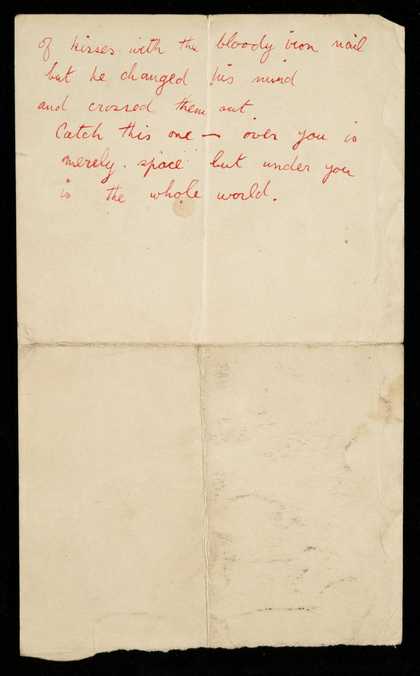 of kisses with the bloody iron nail
but he changed his mind
and crossed them out
Catch this one — over you is
merely space but under you
is the whole world.